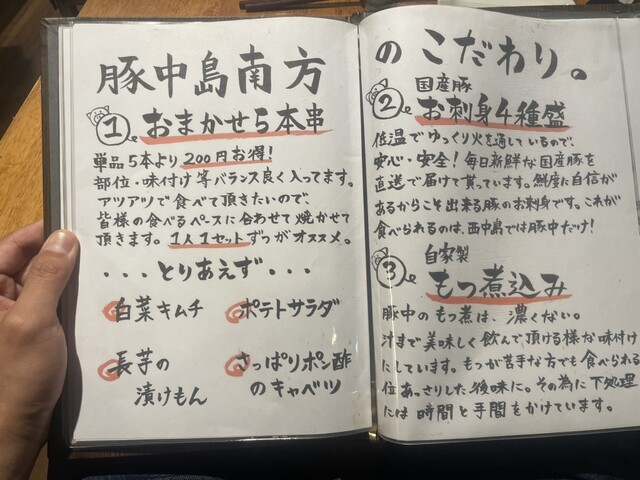 豚中島南方
1 おまかせ5本串
単品5本より200円お得!
部位・味付け等バランス良く入ってます。
アツアツで食べて頂きたいので、
皆様の食べるペースに合わせて焼かせて
頂きます。1人1セットずつがオススメ。
・・・とりあえず・・・
白菜キムチ
ポテトサラダ
長芋の
漬けもん
さっぱりポン酢
のキャベツ
のこだわり。
国産豚
2 お刺身4種盛
低温でゆっくり火を通しているので、
安心・安全!毎日新鮮な国産豚を
直送で届けて貰っています。鮮度に自信が
あるからこそ出来る豚のお刺身です。これが
食べられるのは、西中島では豚中だけ!
自家製
3 もつ煮込み
豚中のもつ煮は、濃くない。
汁まで美味しく飲んで頂ける様な味付け
にしています。もつが苦手な方でも食べられる
位あっさりした後味に。その為に下処理
には時間と手間をかけています。